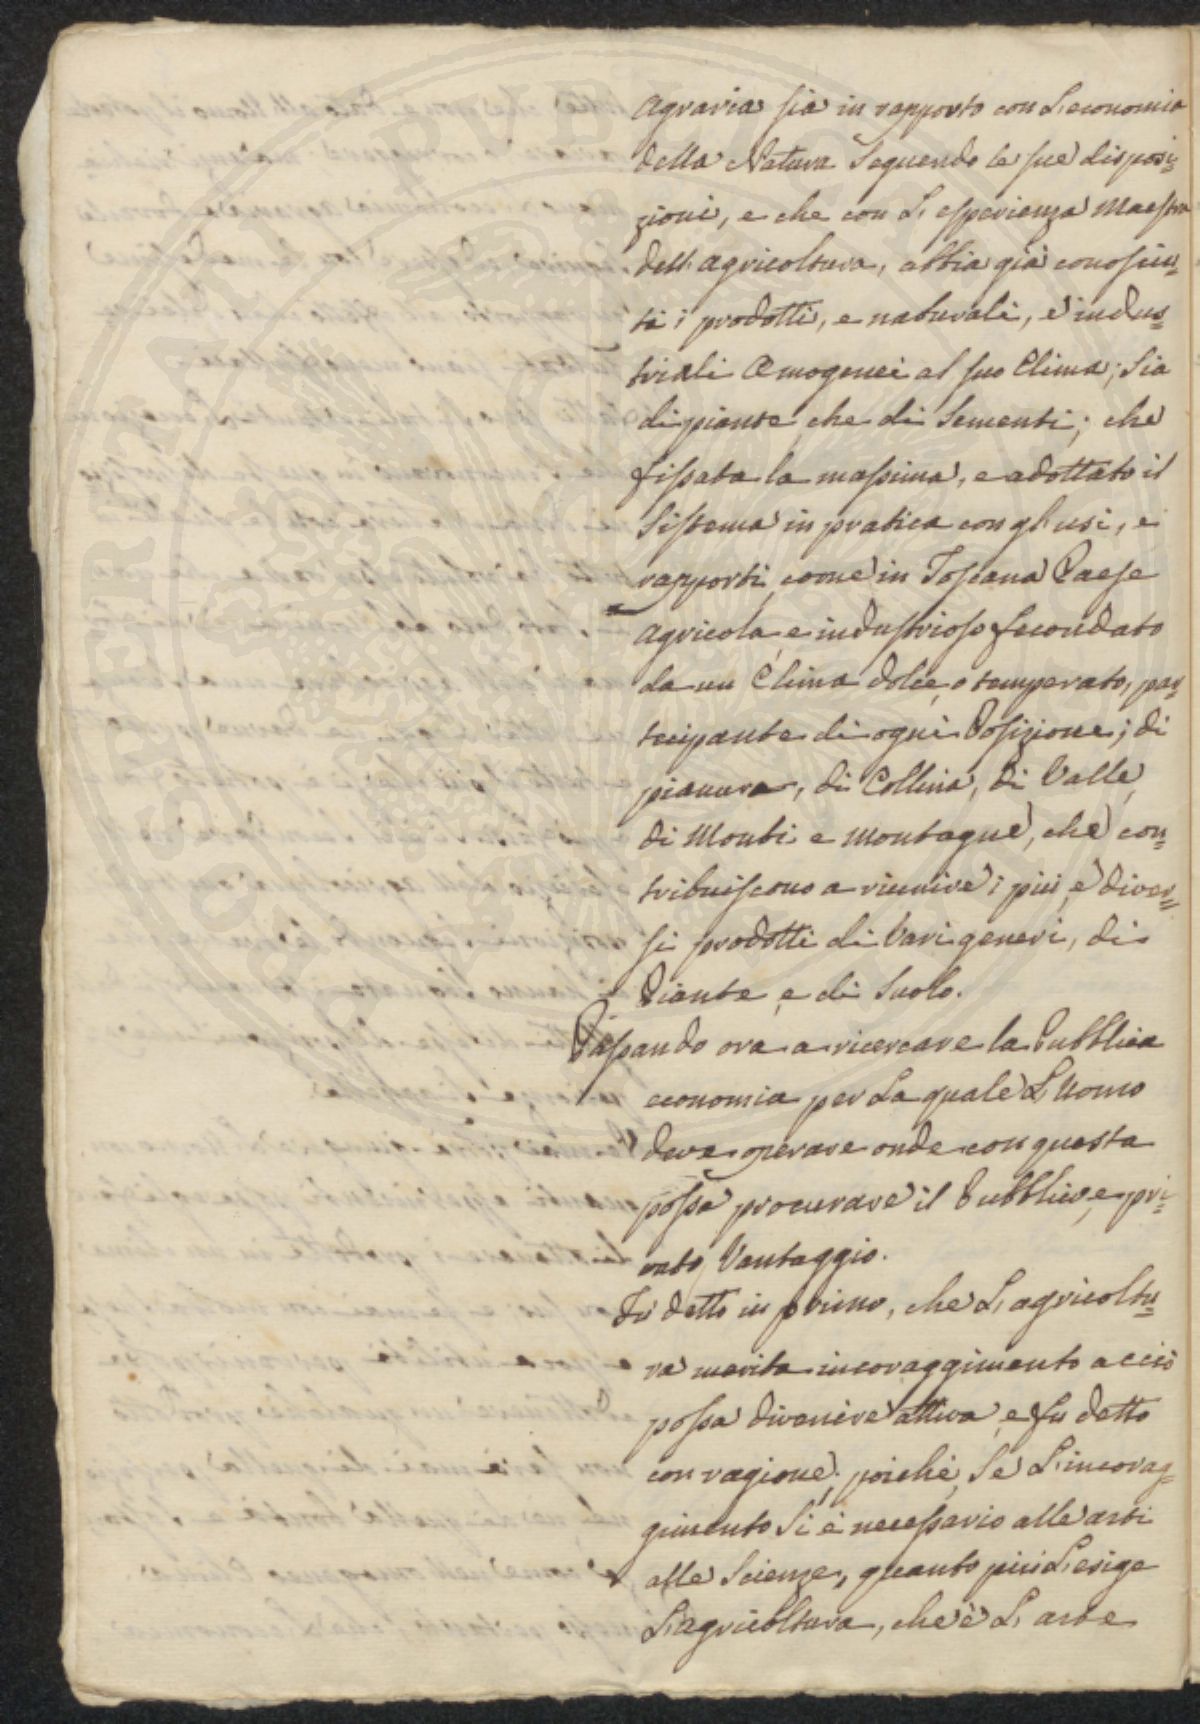 Agraria sia in rapporto con L'economia
della Natura Seguendo le sue disposi=
zioni, e che con L'esperienza Maestra
dell'agricoltura, abbia già conosciu=
ti i prodotti, e naturali, e indus=
triali Omogenei al suo Clima; Sia
di piante, che di Sementi; che
fissata la massima, e adottato il
Sistema in pratica con gl'usi, e
rapporti, come in Toscana Paese
Agricola, e industrioso fecondato
da un Clima dolce, o temperato, par=
tecipante di ogni Posizione; di
pianura, di Collina, di Valle,
di Monti e Montagne, che con=
tribuiscono a riunire i più, e diver=
si prodotti di Vari generi, di
Piante, e di Suolo.
Passando ora a ricercare la Pubblica
economia per La quale L'Uomo
deve operare onde con questa
possa procurare il Pubblico, e pri=
vato Vantaggio.
Fu detto in primo, che L'agricoltu=
ra merita incoraggimento acciò
possa divenire attiva, e fu detto
con ragione; poichè, Se L'incorag=
gimento Si è necessario alle arti
alle Scienze, quanto più L'esige
L'agricoltura, che è L'arte